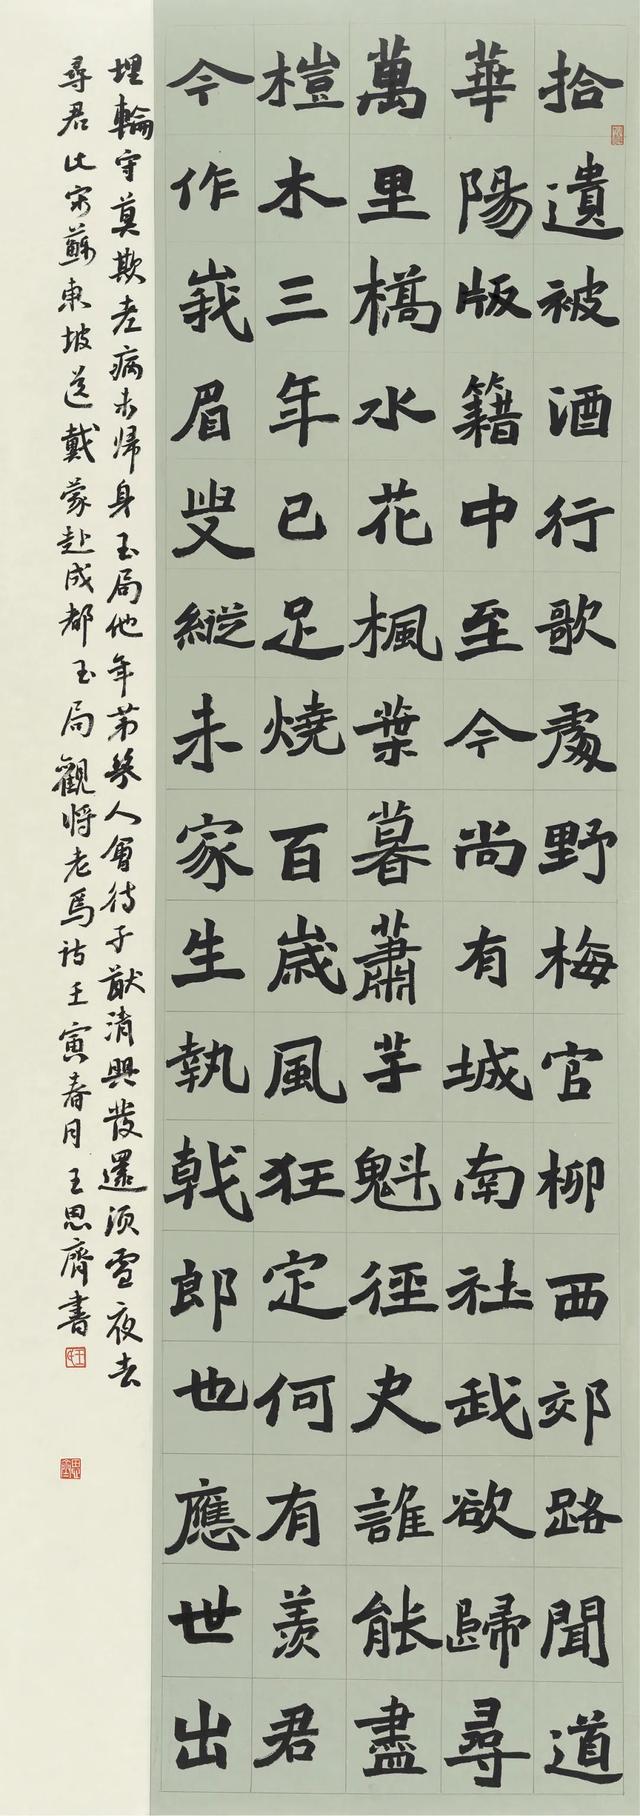 拾遺被酒行歌處野梅官柳西郊路聞道
華陽版籍中至今尚有城南社我欲歸尋
萬里橋水花楓葉暮蕭芋魁徑尺誰能盡
榿木三年已足燒百歲風狂定何有羨君
今作峩眉叟縱未家生執戟郎也應世出
埋輪守莫欺老病未歸身玉局他年第幾人會待子猷清興發還須雪夜去
尋君此宋蘇東坡送戴蒙赴成都玉局觀將老焉詩壬寅春月王思齊書